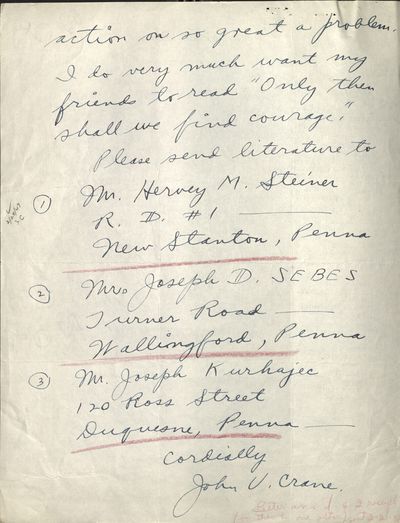 action on so great a problem.
I do very much want my
friends to read "Only then
shall we find courage."
Please send literature to
① Mr. Hervey M. Steiner
R. D. #1
New Stanton, Penna
② Mr. Joseph D. SEBES
Turner Road
Wallingford, Penna
③ Mr. Joseph Kurhajec
120 Ross Street
Duquesne, Penna
Cordially
John V. Crane.